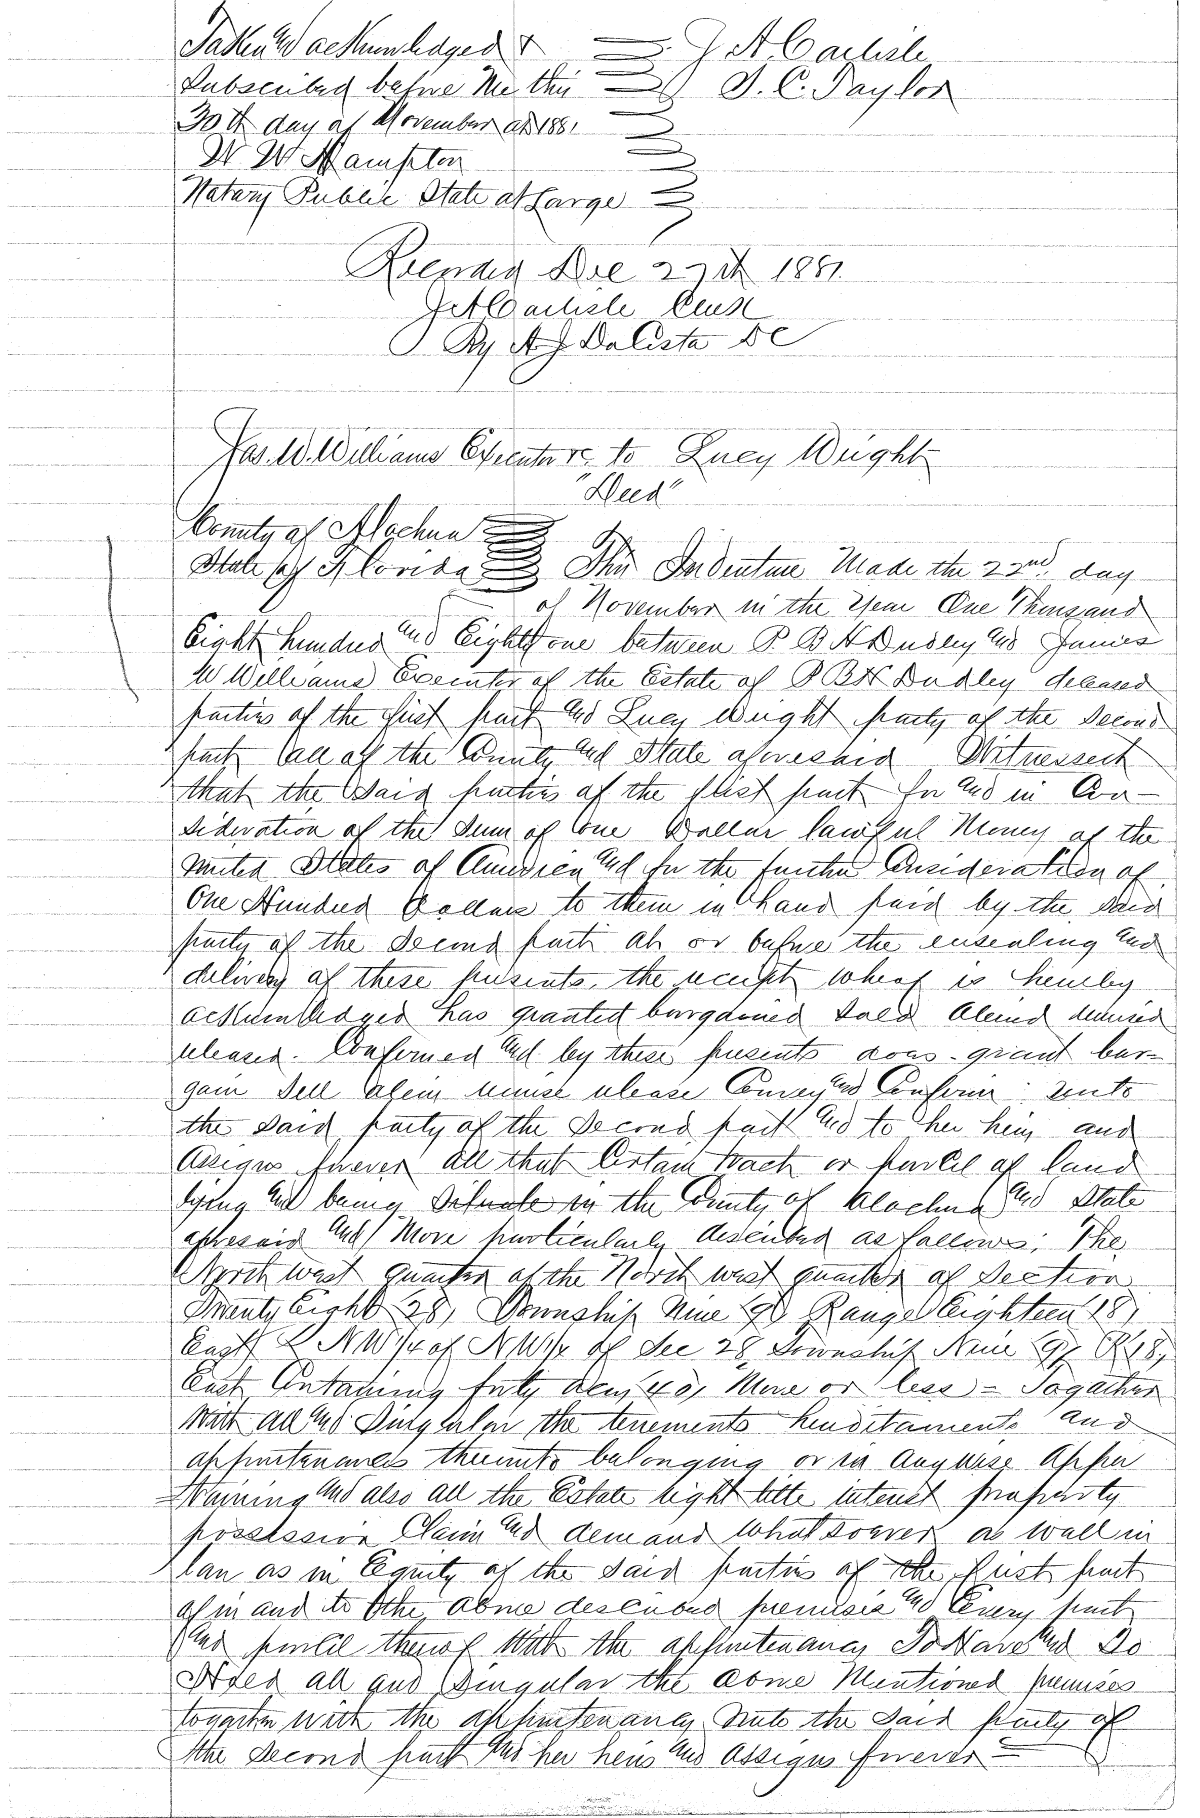 Taken and acknowledged & J A Carlisle
Subscribed before me this S. C. Taylor
30th day of November AD 1881
W W Hampton
Notary Public State at Large
Recorded Dec 27th 1881
J A Carlisle Clerk
By A J DaCosta DC
Jas. W. Williams Executor &c. to Lucy Wright
"Deed"
County of Alachua
State of Florida This Indenture Made the 22nd. day
of November in the Year One Thousand
Eight hundred and Eighty one between P B H Dudley and James
W Williams Executor of the Estate of P B H Dudley deceased
parties of the first part and Lucy Wright party of the Second
part all of the County and State aforesaid Witnesseth
that the said parties of the first part for and in Con-
sideration of the Sum of One Dollar lawful Money of the
United States of America and for the further Consideration of
One Hundred Dollars to them in hand paid by the said
party of the Second part at or before the ensealing and
delivery of these presents, the receipt whereof is hereby
acknowledged has granted bargained sold aliend demised
released. Confirmed and by these presents does grant bar-
gain Sell alien remise release Convey and Confirm unto
the said party of the Second part and to her heirs and
Assigns forever all that Certain tract or parcel of land
lying and being situate in the County of Alachua and State
aforesaid and More particularly described as follows: The
North west quarter of the North west quarter of Section
Twenty Eight (28) Township Nine (9) Range Eighteen (18)
East NW 1/4 of NW 1/4 of Sec 28 Township Nine (9) R (18)
East Containing forty acres (40) More or less - Together
With all and Singular the tenements hereditaments and
appurtenances thereunto belonging or in anywise Apper
taining and also all the Estate right title interest property
possession Claim and demand whatsoever as well in
law as in Equity of the said parties of the first part
of in and to the above described premises and Every part
and parcel thereof With the appurtenances To Have and To
Hold all and Singular the above Mentioned premises
together with the appurtenances unto the said party of
the Second part and her heirs and Assigns forever =